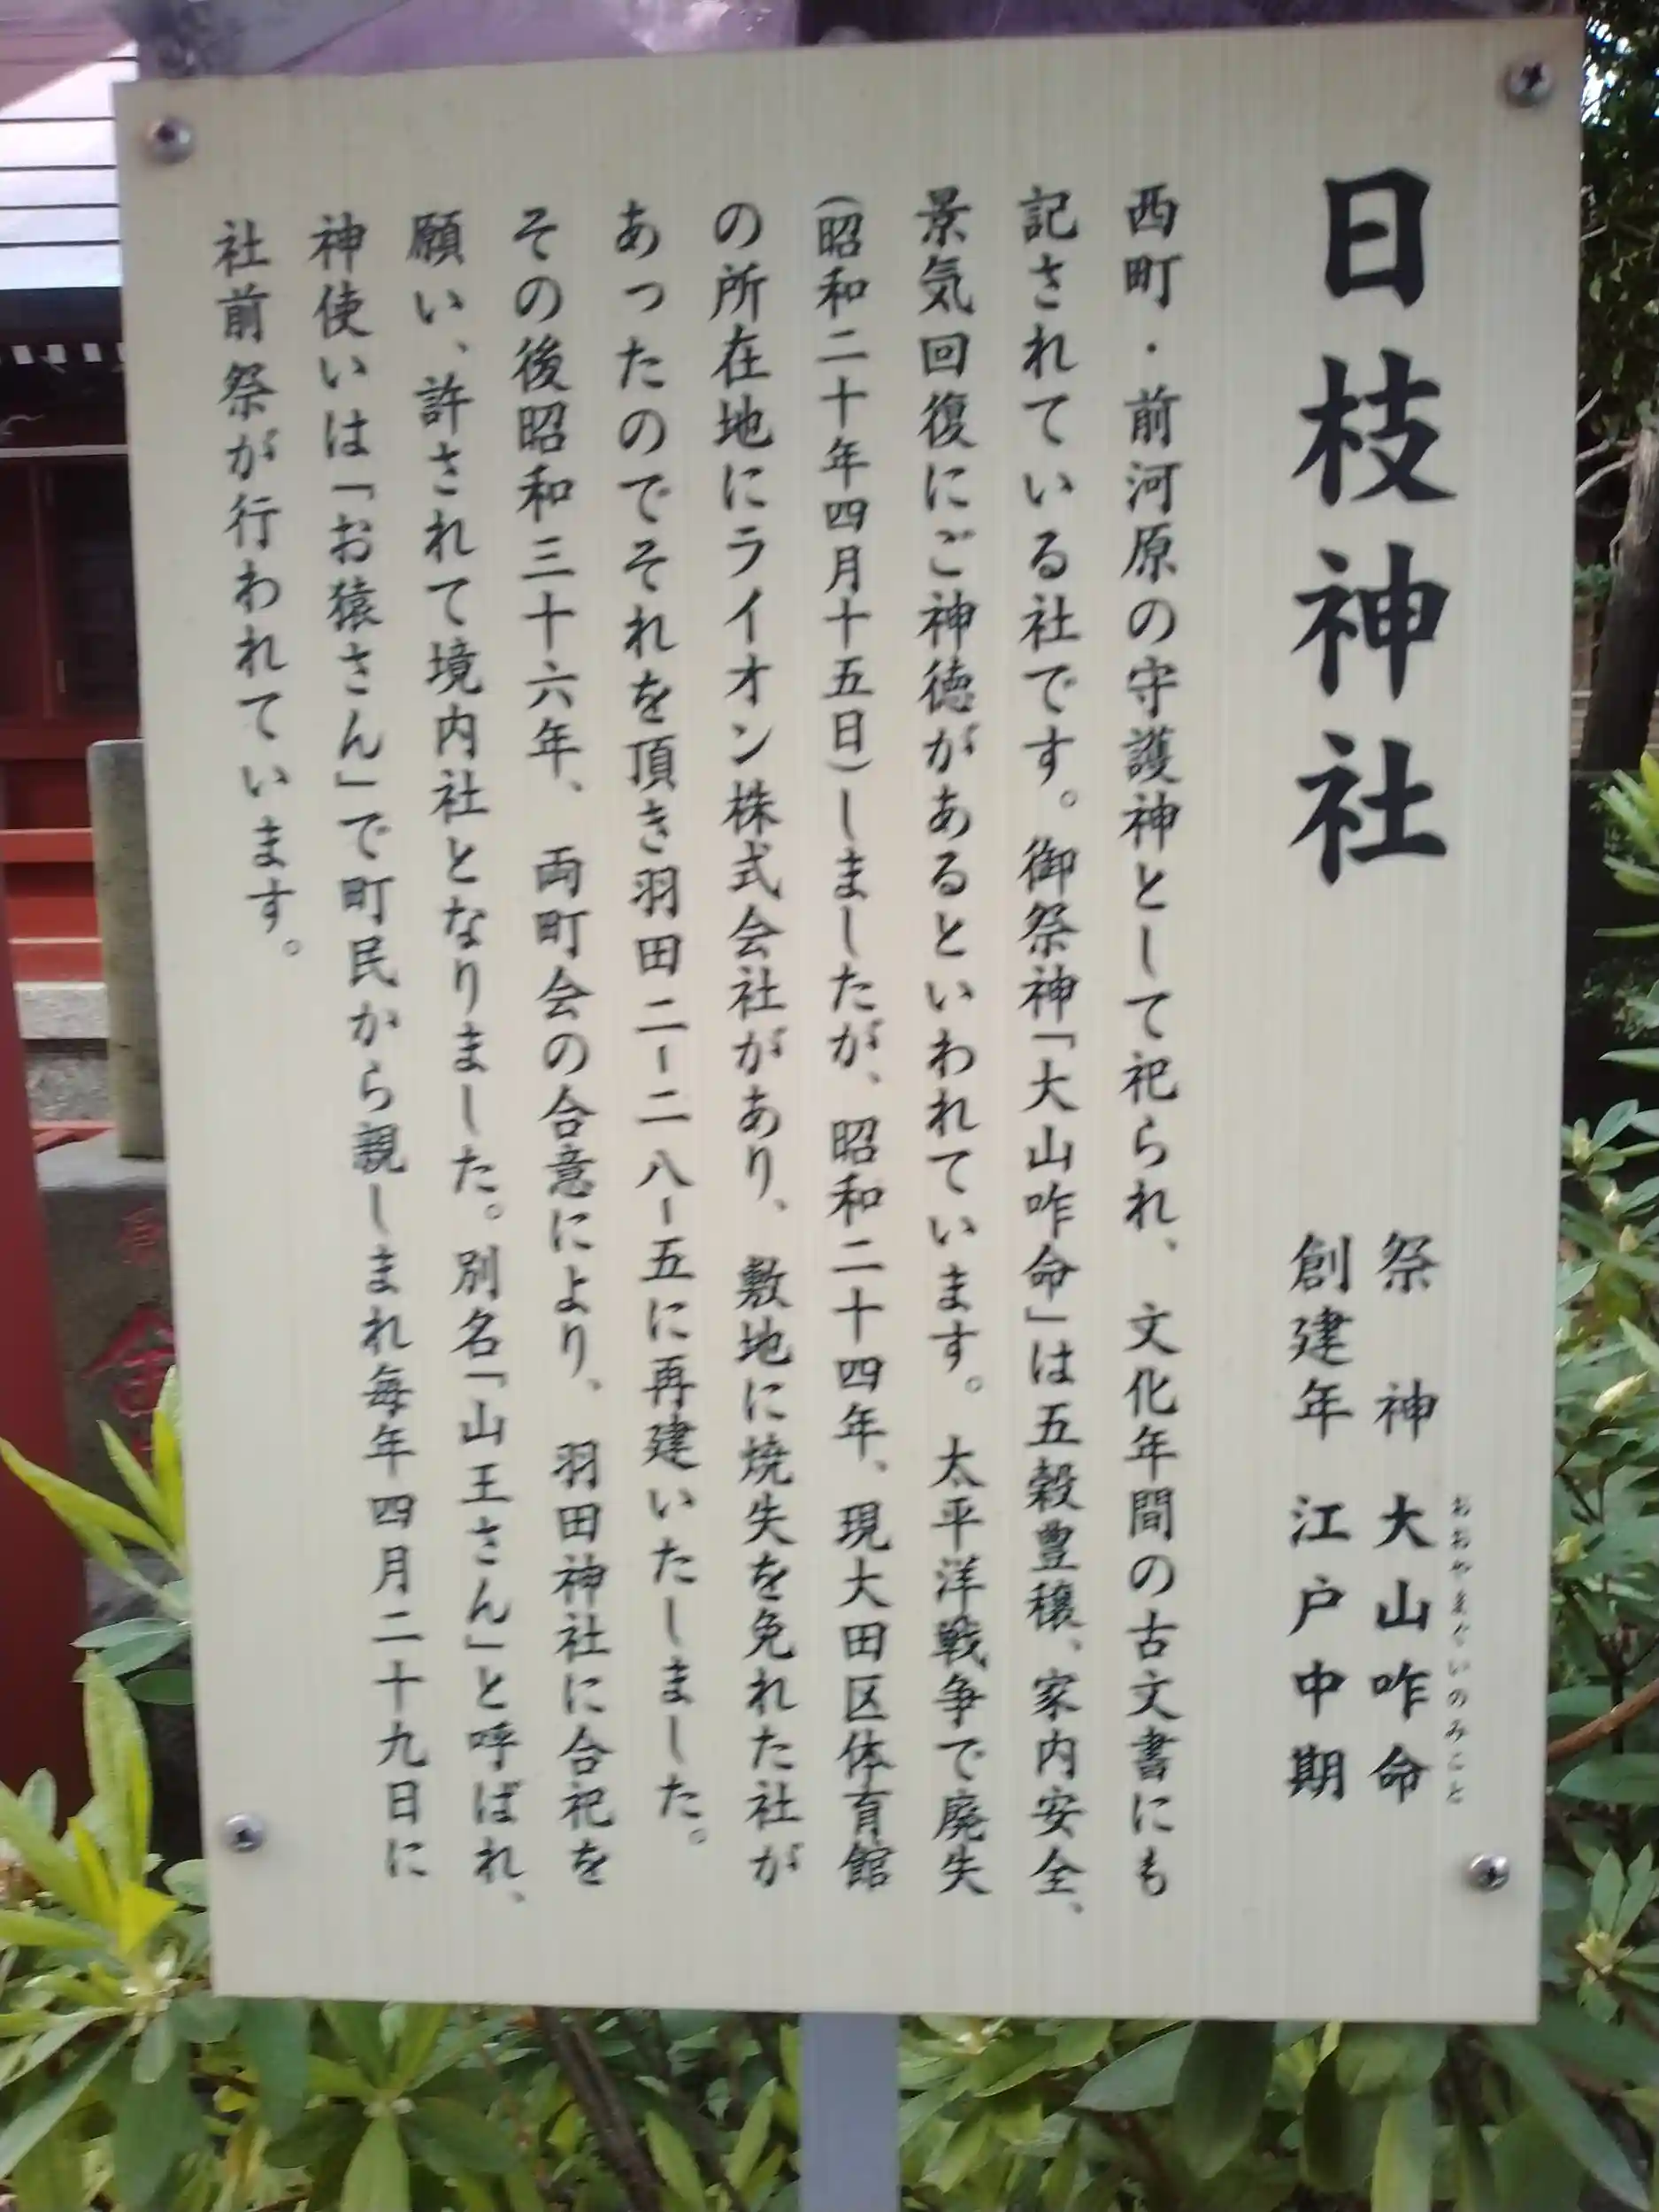 日枝神社
祭神 大山咋命
おおやまぐいのみこと
創建年 江戸中期
西町・前河原の守護神として祀られ、文化年間の古文書にも
記されている社です。御祭神「大山咋命」は五穀豊穣、家内安全、
景気回復にご神徳があるといわれています。太平洋戦争で廃失
(昭和二十年四月十五日)しましたが、昭和二十四年、現大田区体育館
の所在地にライオン株式会社があり、敷地に焼失を免れた社が
あったのでそれを頂き羽田二-二八-五に再建いたしました。
その後昭和三十六年、両町会の合意により、羽田神社に合祀を
願い、許されて境内社となりました。別名「山王さん」と呼ばれ、
神使いは「お猿さん」で町民から親しまれ毎年四月二十九日に
社前祭が行われています。